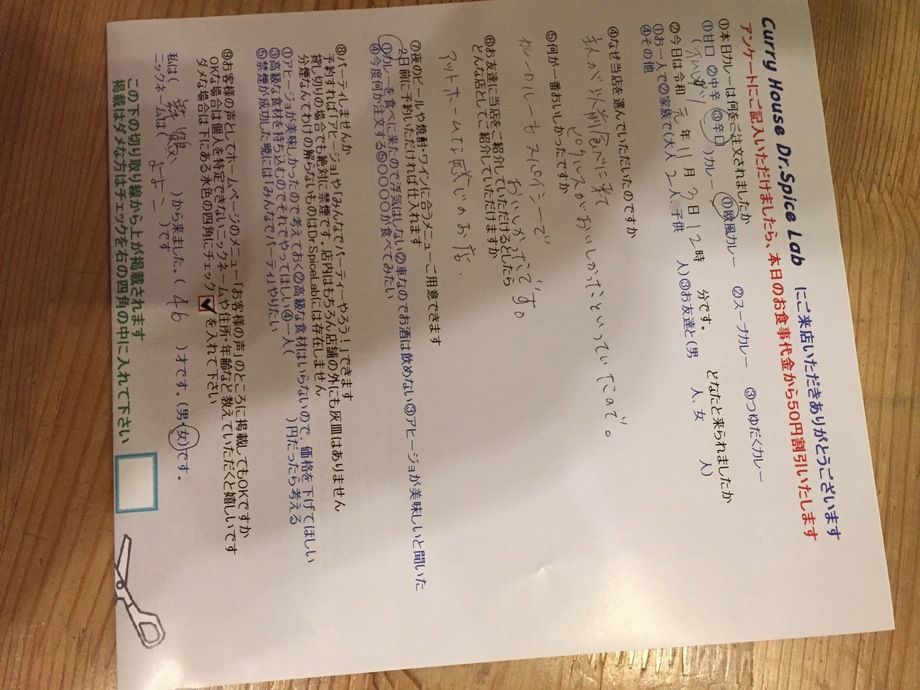 Curry House Dr.Spice Lab にご来店いただきありがとうございます
アンケートにご記入いただけましたら、本日のお食事代金から50円割引いたします
①本日カレーは何をご注文されましたか ①欧風カレー ②スープカレー ③つゆだくカレー
①甘口 ②中辛 ③辛口 ( )カレー
②今日は令和 元年 11月 3日 12時 分です。 どなたと来られましたか
①お一人で②家族で(大人 2人、子供 人)③お友達と(男 人、女 人)
④その他
④なぜ当店を選んでいただいたのですか
主人が以前食べに来て
ピクルスがおいしかったといっていたので。
⑤何が一番おいしかったですか
カレーのルーもスパイシーで
おいしかったです。
⑥お友達に当店をご紹介していただけるとしたら
どんな店としてご紹介していただけますか
アットホームな感じのお店。
⑦夜のビールや焼酎・ワインに合うメニューご用意できます
2日前に予約していただければ仕入れます
①カレーを食べに来たので浮気はしない②車なのでお酒は飲めない③アヒージョが美味しいと聞いた
④今度何か注文する⑤○○○○が食べてみたい
⑧パーティしませんか
予約すれば「アヒージョ」や「みんなでパーティーやろう!」できます
貸し切りの場合でも絶対に禁煙です。店内はもちろん店舗の外にも灰皿はありません
分煙なんてわけの解らないものはDr.SpiceLabには存在しません
①アヒージョが美味しかったので考えておく②高級な食材はいらないので、価格を下げてほしい
③高級な食材を持ち込むのでそれでやってほしい④一人( )円だったら考える
⑤禁煙が成功した暁には「みんなでパーティ」やりたい
⑨お客様の声としてホームページのメニュー「お客様の声」のところに掲載してもOKですか
OKな場合は個人を特定できないニックネームや住所・年齢など教えていただくと嬉しいです
ダメな場合は下にある水色の四角にチェック☑を入れて下さい
私は( )から来ました。( 46 )才です。(男・女)です。
ニックネームは( よこ )です
この下の切り取り線から上が掲載されます
掲載はダメな方はチェックを右の四角の中に入れて下さい